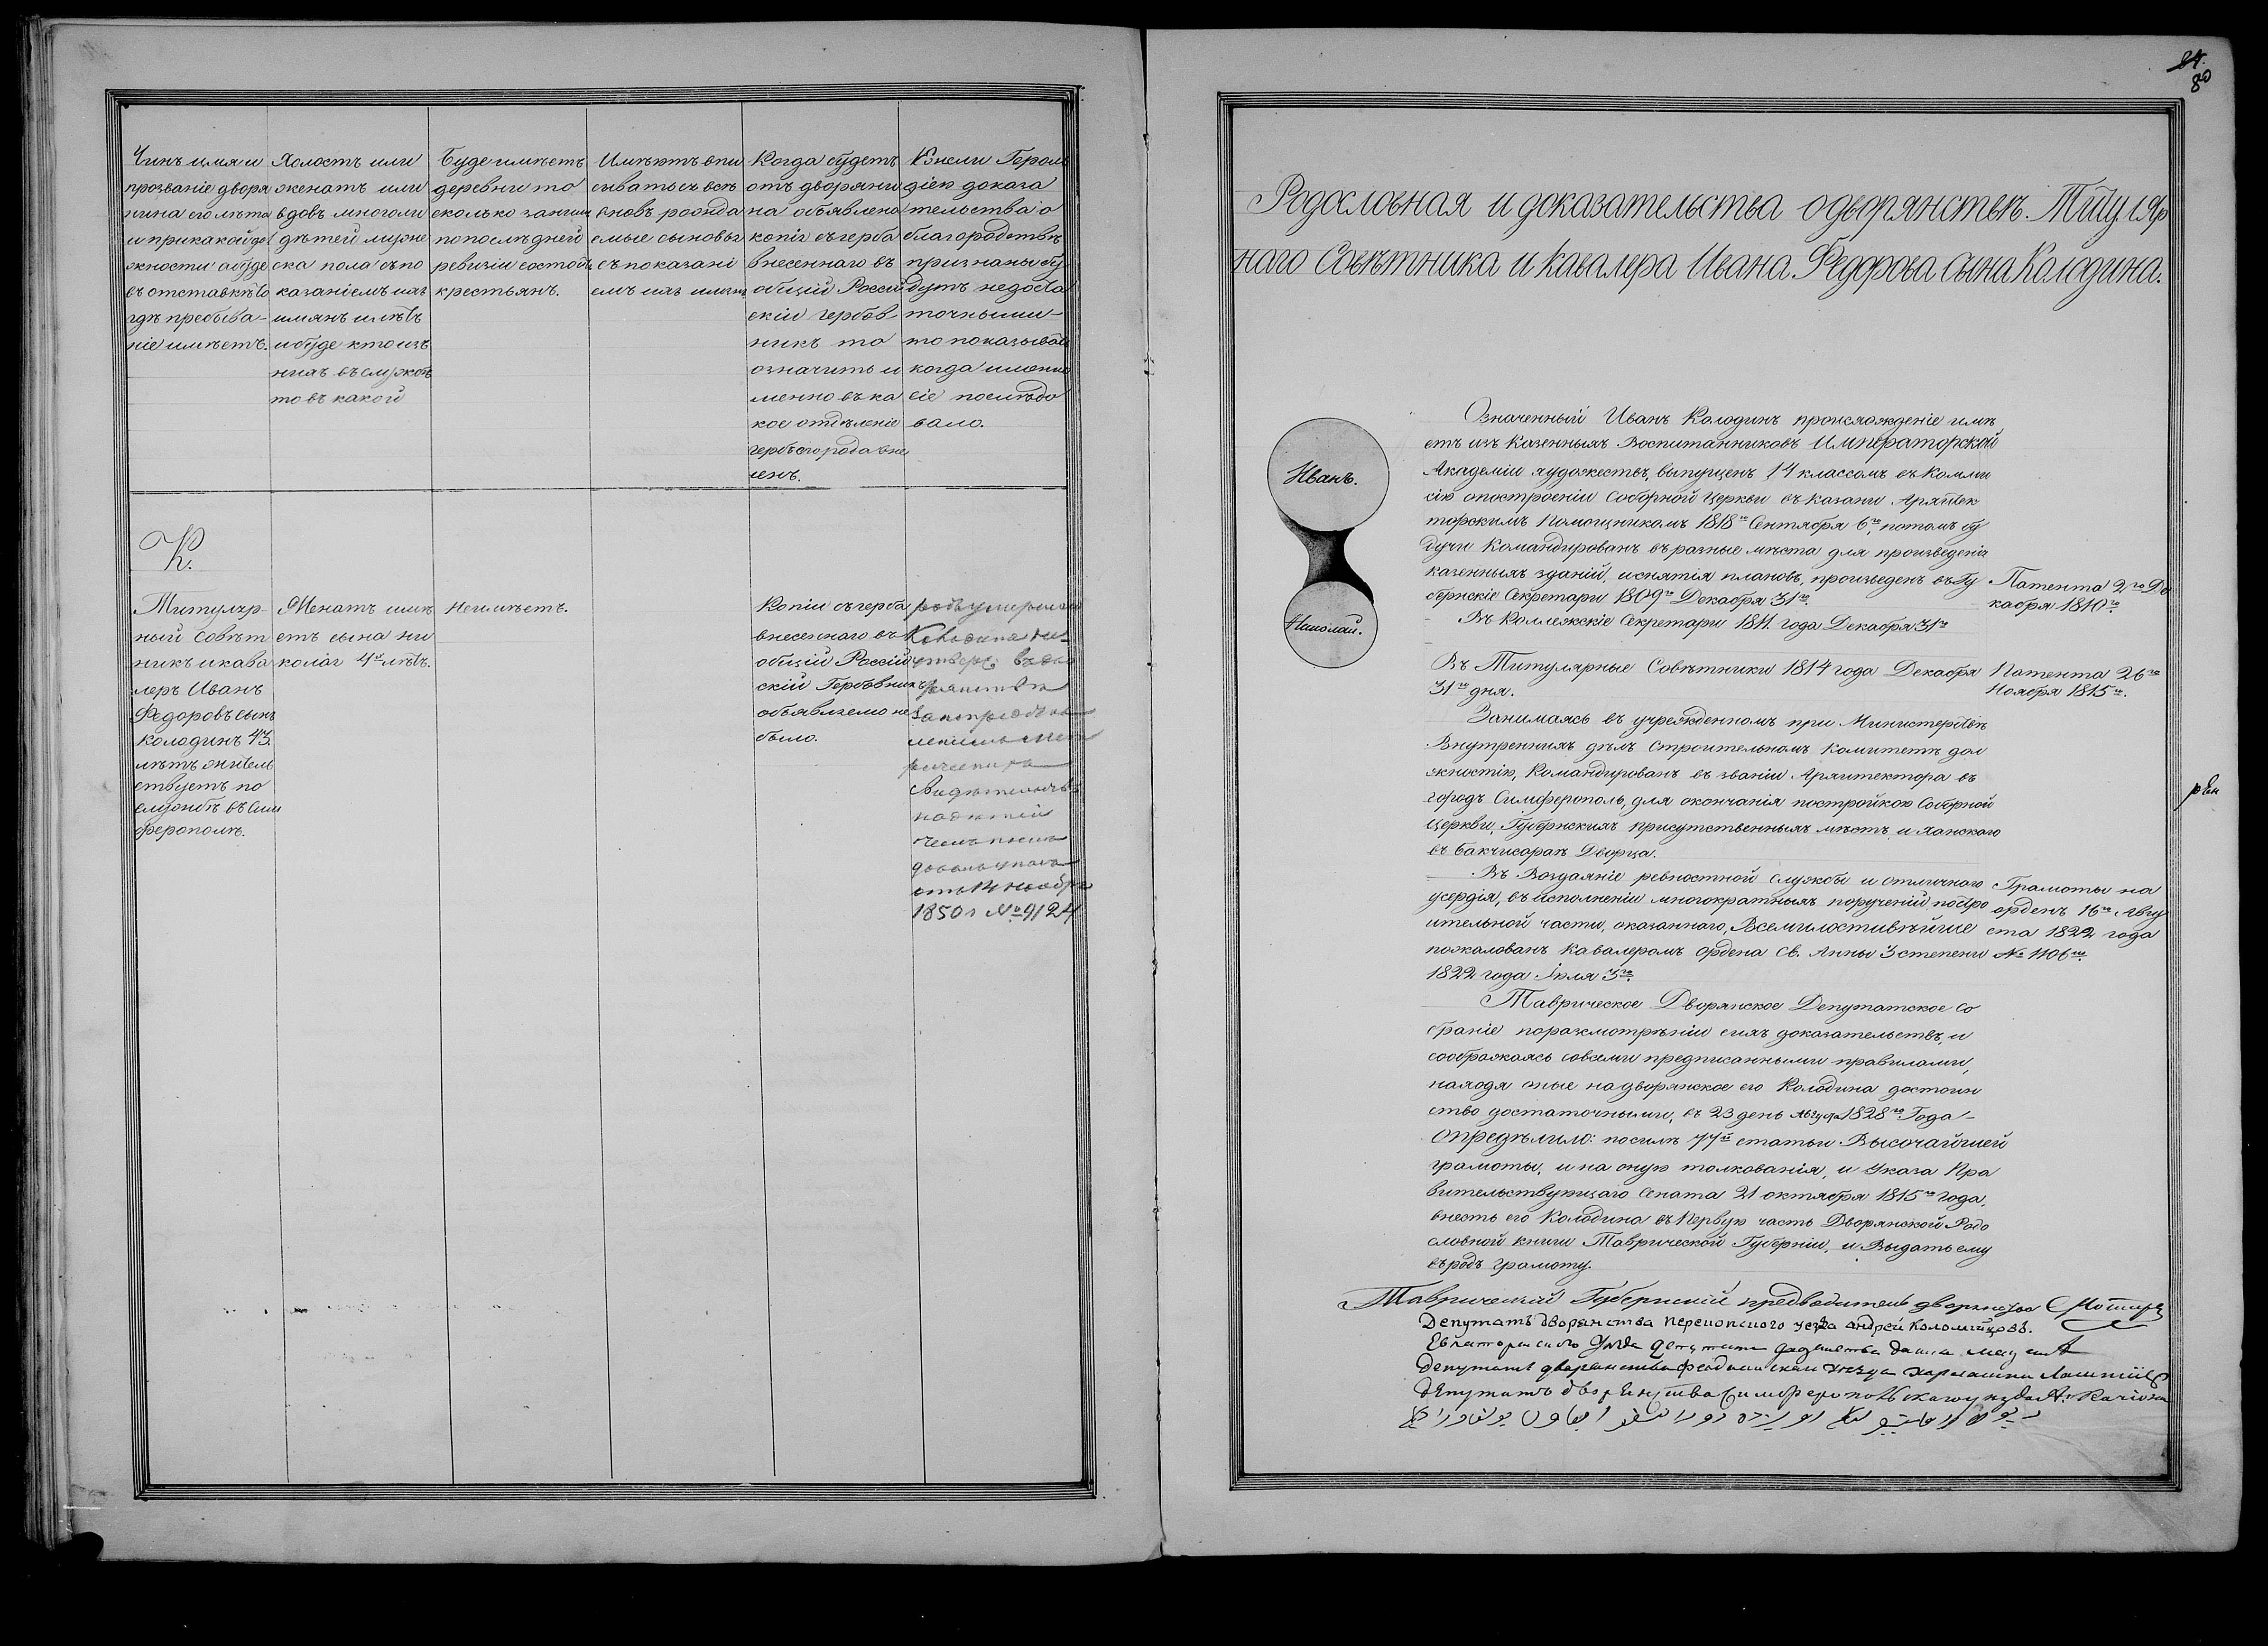 Чинъ имя и
прозваніе дворя
нина его лѣта
и при какой дол
жности а буде
въ отставкѣ то
гдѣ пребыва-
ніе имѣетъ.
Холостъ или
женатъ или
вдовъ многоли
дѣтей муже
ска пола съ по
казаніемъ ихъ
имянъ и лѣтъ
и буде кто изъ
нихъ въ службѣ
то въ какой
Буде имѣетъ
деревни то
сколько за ним
по послѣдней
ревизіи состоитъ
крестьянъ.
Имѣютъ впи
сыватьсь всѣ
вновь рожда
емые сыновья
съ показані
емъ ихъ имянъ
Когда будетъ
отъ дворяни
на объявлена
копія съ герба
внесеннаго въ
общій Россій
скій гербов-
никъ то
означить и
менно въ ка
кое отдѣленіе
гербъ его рода вне
сенъ.
Если Героль
діею доказа
тельства о
благородствѣ
признаны бу
дутъ недоста
точными-
то показывать
когда именно
сіе послѣдо
вало.
К.
Титуляр-
ный Совѣт
никъ и кава
леръ Иванъ
Федоровъ сынъ
Колодинъ 43.
лѣтъ житель
ствуетъ по
службѣ въ Сим
ферополѣ.
Женатъ имѣ
етъ сына Ни
колая 4хъ лѣтъ.
Неимѣетъ.
Копіи съ герба
внесеннаго въ
общій Россій
скій Гербовникъ
объявляемо не
было.
родъ умершаго
Колодина не
утверж: въ дво
рянствѣ
за непредстав
леніемъ
отъ 14 Ноября
1850 г №9124
84.
80
Родословная и доказательства о дворянствѣ. Титуляр
наго Совѣтника и Кавалера Ивана Федорова сына Колодина.
Иванъ.
Николай.
Означенный Иванъ Колодинъ происхожденіе имѣ
етъ изъ Казенныхъ Воспитанниковъ Императорской
Академіи художествъ, выпущенъ 14 классомъ въ Комми
сію о построеніи Соборной Церкви въ Казани Архитек
торскимъ Помощникомъ 1818го Сентября 6го, потомъ бу
дучи Командированъ въ разные мѣста для произведенія
казенныхъ зданій, и снятія плановъ, произведенъ въ Гу
бернскіе Секретари 1809го Декабря 31го.
Патента 2го Де
кабря 1810го
Въ Коллежскіе Секретари 1811 года Декабря 31го
Въ Титулярные Совѣтники 1814 года Декабря
31го дня.
Патента 26го
Ноября 1815го.
Занимаясь въ учрежденномъ при Министерствѣ
Внутреннихъ дѣлъ Строительномъ Комитетѣ дол
жностію, Командированъ въ званіи Архитектора въ
городъ Симферополь, для окончанія постройкою Соборной
Церкви, Губернскихъ присутственныхъ мѣстъ и Ханскаго
въ Бакчисараѣ Дворца.
Въ Воздаяніе ревностной службы и отличнаго
усердія, въ исполненіи многократныхъ порученій по стро
ительной части, оказаннаго, Всемилостивѣйше
пожалованъ Кавалеромъ Ордена Св. Анны 3 степени
1822 года Іюля 3го.
Грамоты на
орденъ 16го Авгу
ста 1822 года
№ 1106мъ.
Таврическое Дворянское Депутатское Со
браніе поразсмотрѣніи сихъ доказательствъ, и
соображаясь совсеми предписанными правилами,
находя оные на дворянское его Колодина достоин
ство достаточными, въ 23 день Августа 1828го Года-
Опредѣлило: посилѣ 77й статьи Высочайшей
грамоты, и на оную толкованія, и Указа Пра
вительствующаго Сената 21 октября 1815го года,
внесть его Колодина въ Первую часть Дворянской Родо
словной книги Таврической Губерніи, и Выдать ему
въ родъ грамоту.
Таврическій Губернскій предводитель дворянства
Депутатъ дворянства перекопского уезда андрей Коломийцовъ.
Депутатъ дворянства феодосійскаго уезда
Депутатъ дворянства Симферопольскаго уезда